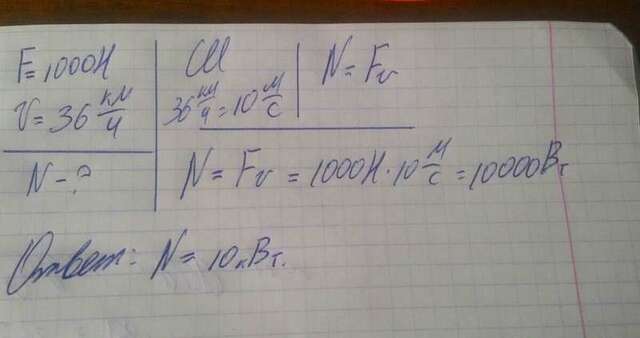 F=1000Н
V=36 км/ч
N-?
СИ
36 км/ч=10 м/с
N=Fv
N=Fv=1000Н·10 м/с=10000Вт
Ответ: N=10кВт.